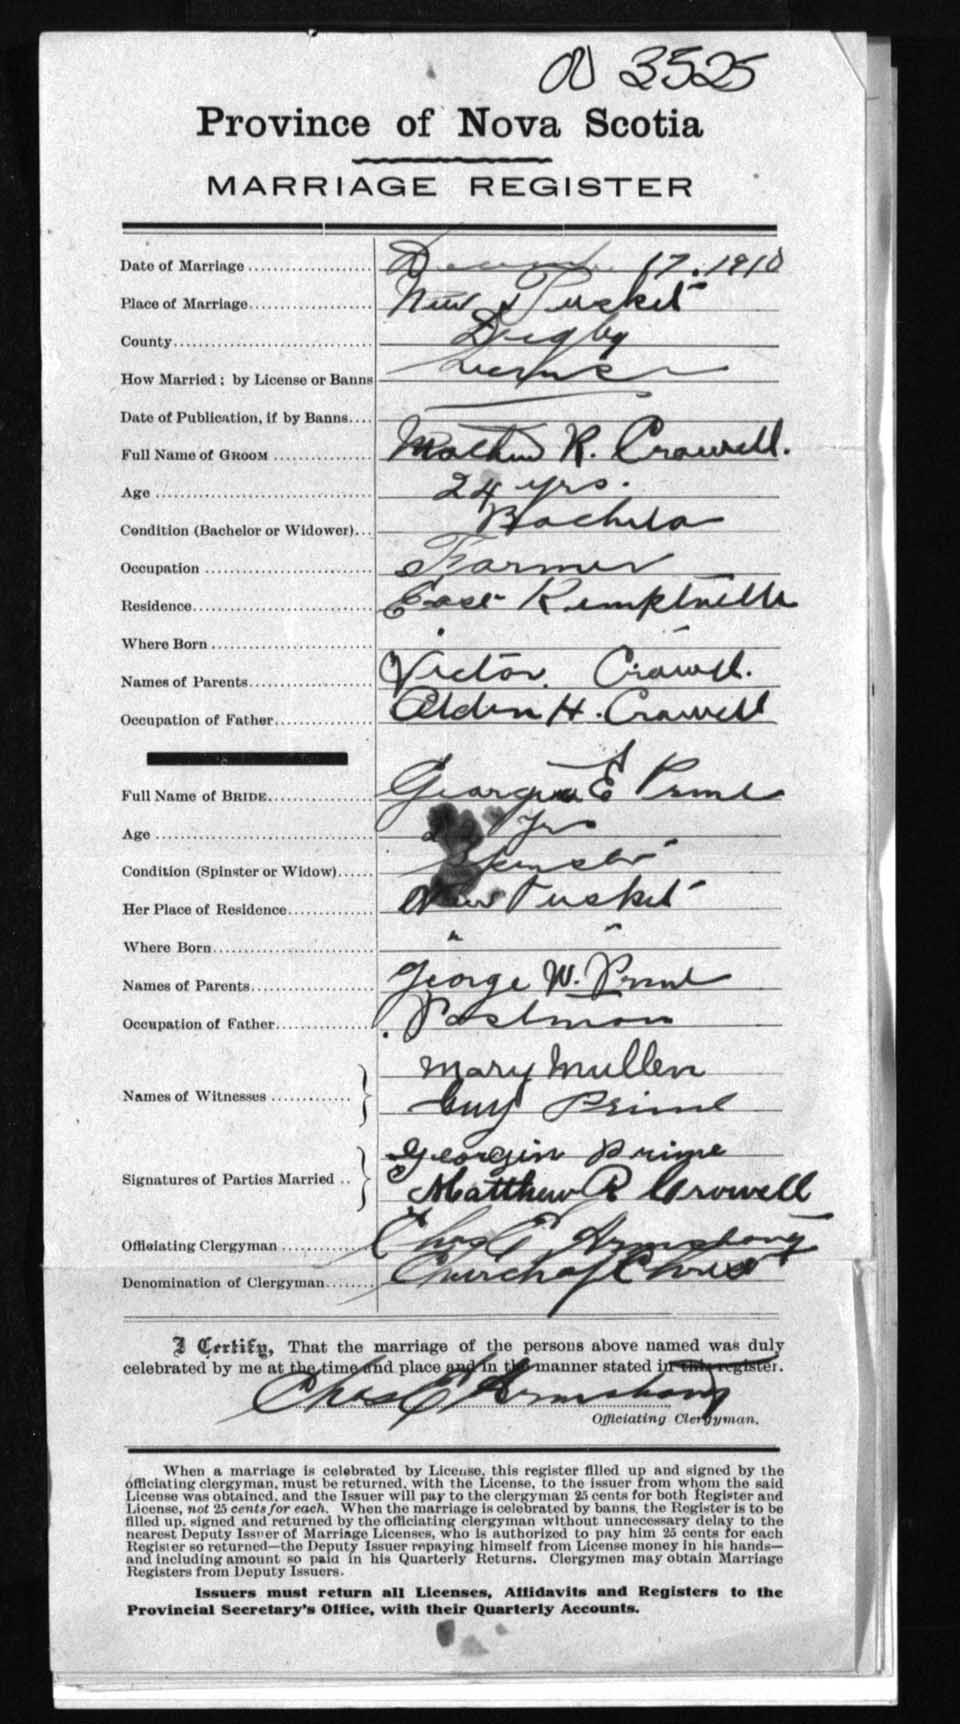 3525
Province of Nova Scotia
MARRIAGE REGISTER
Date of Marriage December 17. 1910
Place of Marriage New Tusket
County Digby
How Married; by License or Banns License
Date of Publication, if by Banns
Full Name of GROOM Mathew R. Crowell.
Age 24 yrs.
Condition (Bachelor or Widower) Bachelor
Occupation Farmer
Residence East Kemptville
Where Born " "
Names of Parents Victor Crowell.
Occupation of Father Alden H. Crowell
Full Name of BRIDE Georgina E Prime
Age yrs
Condition (Spinster or Widow) Spinster
Her Place of Residence New Tusket
Where Born " "
Names of Parents George W. Prime
Occupation of Father Postman
Names of Witnesses Mary Mullen
Guy Prime
Signatures of Parties Married Georgin Prime
Matthew R Crowell
Officiating Clergyman Chas E Armstrong
Denomination of Clergyman Church of Christ
I Certify, That the marriage of the persons above named was duly
celebrated by me at the time and place and in the manner stated in this register.
Chas E Armstrong
Officiating Clergyman.
When a marriage is celebrated by License, this register filled up and signed by the
officiating clergyman, must be returned, with the License, to the issuer from whom the said
License was obtained, and the Issuer will pay to the clergyman 25 cents for both Register and
License, not 25 cents for each. When the marriage is celebrated by banns, the Register is to be
filled up, signed and returned by the officiating clergyman without unnecessary delay to the
nearest Deputy Issuer of Marriage Licenses, who is authorized to pay him 25 cents for each
Register so returned—the Deputy Issuer repaying himself from License money in his hands—
and including amount so paid in his Quarterly Returns. Clergymen may obtain Marriage
Registers from Deputy Issuers.
Issuers must return all Licenses, Affidavits and Registers to the
Provincial Secretary's Office, with their Quarterly Accounts.